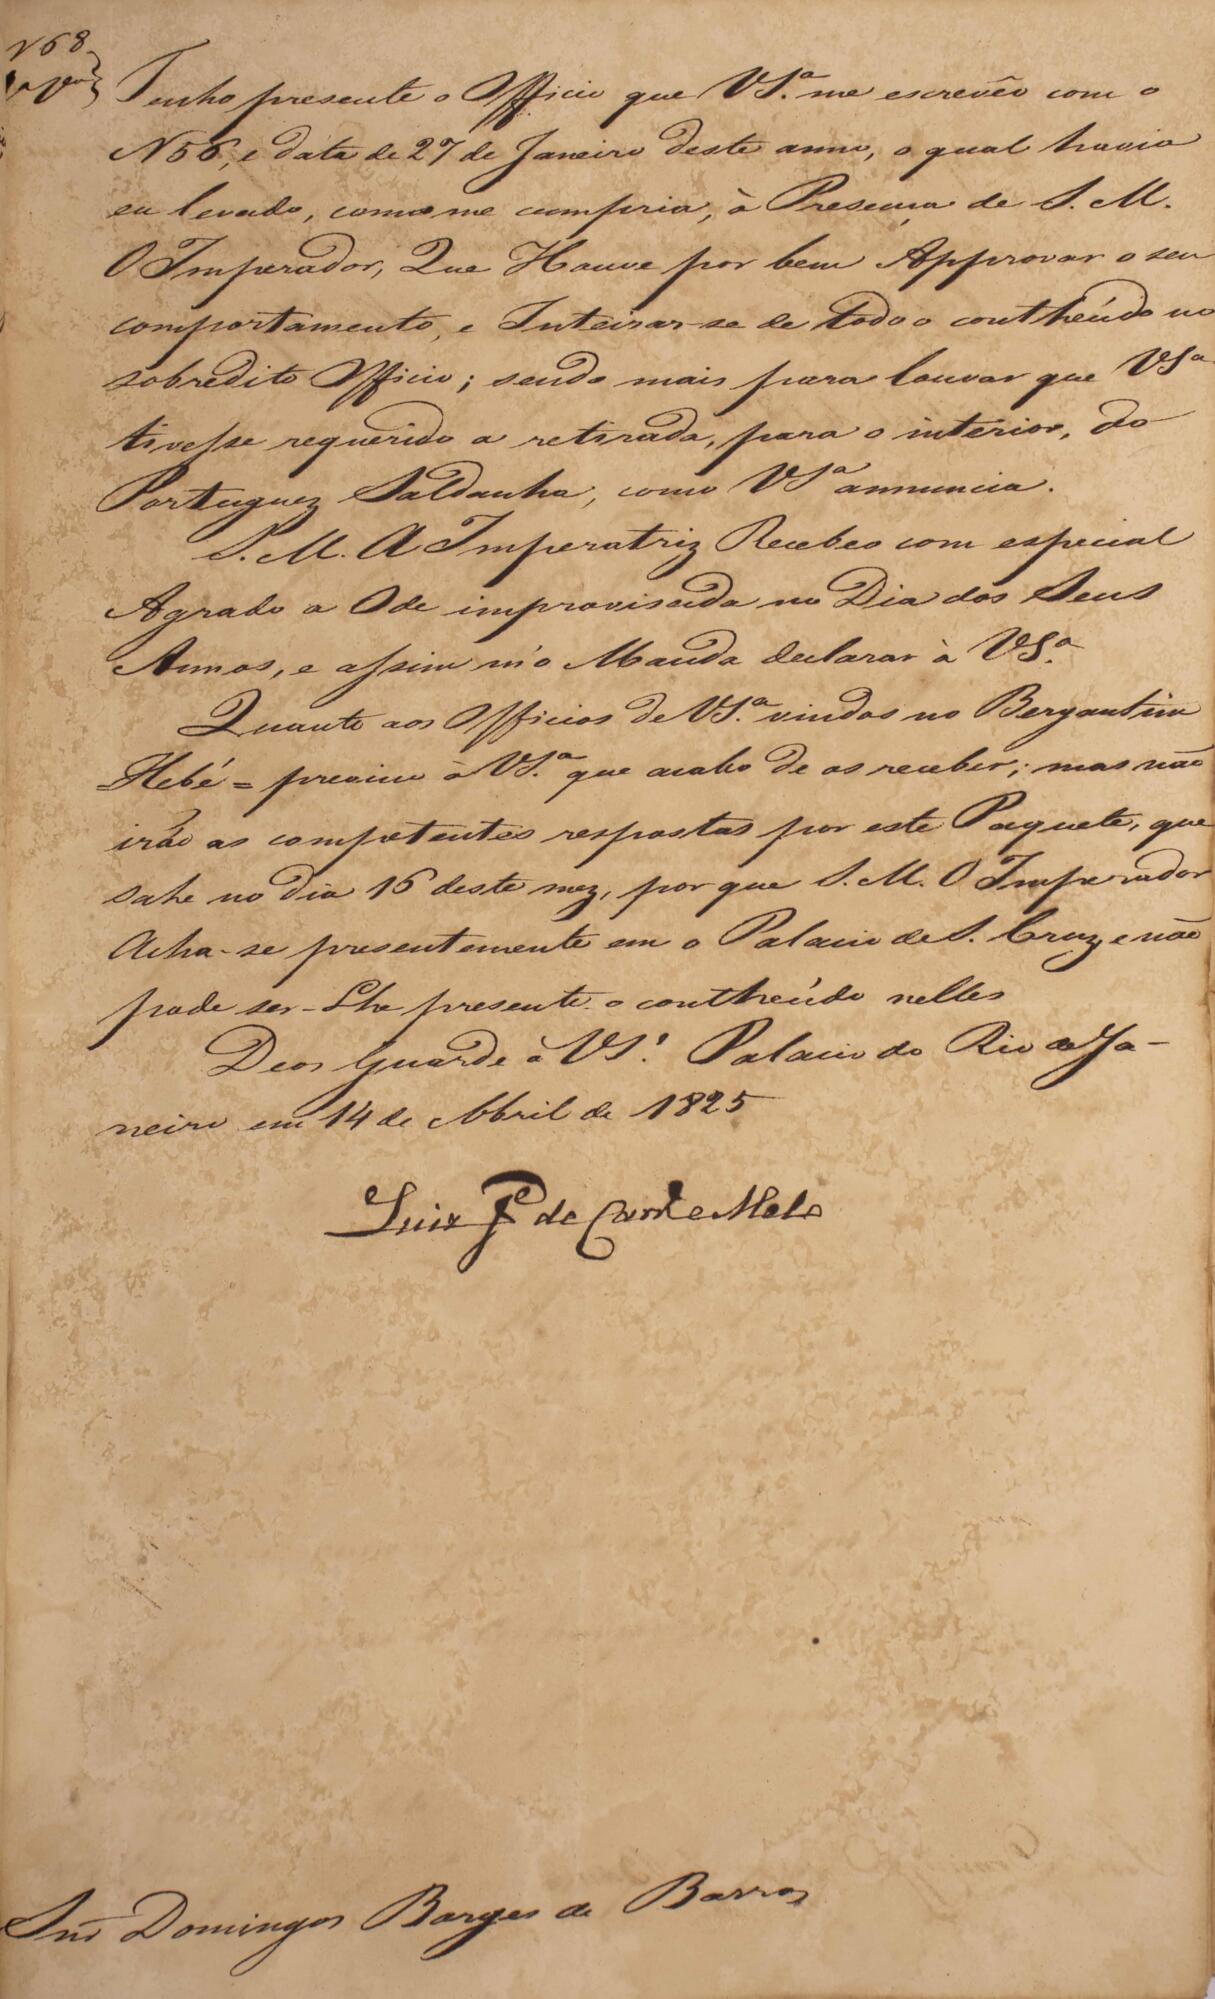 N 68
2ª Via
Tenho presente o Officio que VSª. me escrevêo com o
N 56, e data de 27 de Janeiro deste anno, o qual havia
eu levado, como me cumpria, à Presença de S. M.
O Imperador, Que Houve por bem Approvar o seu
comportamento, e Inteirar-se de todo o conthéudo no
sobredito Officio; sendo mais para louvar que VSª
tivesse requerido a retirada, para o interior, do
Portuguez Saldanha, como VSª annuncia.
S. M. A Imperatriz Recebeo com especial
Agrado a Ode improvisada no Dia dos Seus
Annos, e assim m'o Manda declarar à VSª.
Quanto aos Officios de VSª. vindos no Bergantim
Hebé = previno à VSª. que acabo de os receber; mas não
irão as competentes respostas por este Paquete, que
sahe no dia 16 deste mez, por que S. M. O Imperador
Acha-se presentemente em o Palacio de S. Cruz e não
pode ser-Lhe presente o conthéudo nelles
Deos Guarde à VSª. Palacio do Rio de Ja-
neiro em 14 de Abril de 1825
Luiz Jé de Carvº e Mello
Snr Domingos Borges de Barros